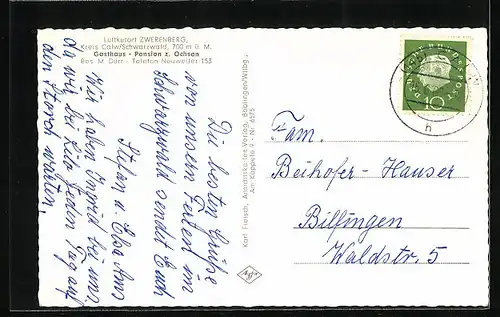 Luftkurort ZWERENBERG,
Kreis Calw/Schwarzwald, 700 m ü. M.
Gasthaus - Pension z. Ochsen
Bes. M. Dürr - Telefon Neuweiler 153
Die besten Grüße
von unseren Ferien im
Schwarzwald sendet Euch
Stefan u. Elsa
Wir haben Ingrid bei uns
da wir bei Rita jeden Tag auf
den Storch warten.
Karl Fleisch, Ansichtskarten-Verlag, Böblingen/Wttbg.,
Am Käppele 9 - Nr. 6175
Agfa
DEUTSCHE BUNDESPOST
10
h
Fam.
Beihofer-Hauser
Bilfingen
Waldstr. 5